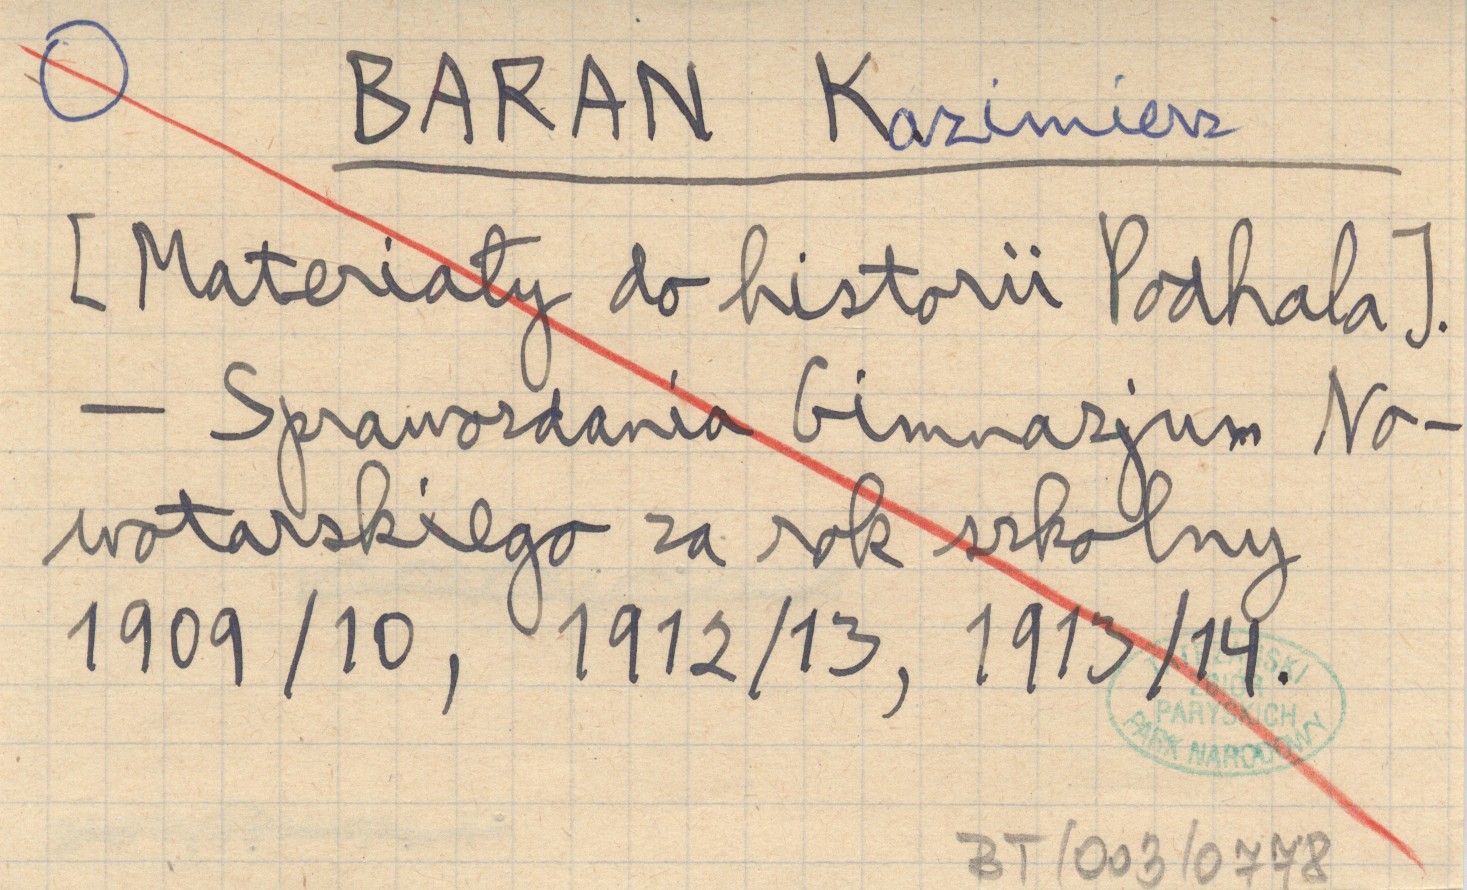 BARAN Kazimierz
[Materiały do historii Podhala].
— Sprawozdania Gimnazjum No-
wotarskiego za rok szkolny
1909/10, 1912/13, 1913/14.
TATRZAŃSKI
ZBIÓR
PARYSKICH
PARK NARODOWY
BT/003/0778